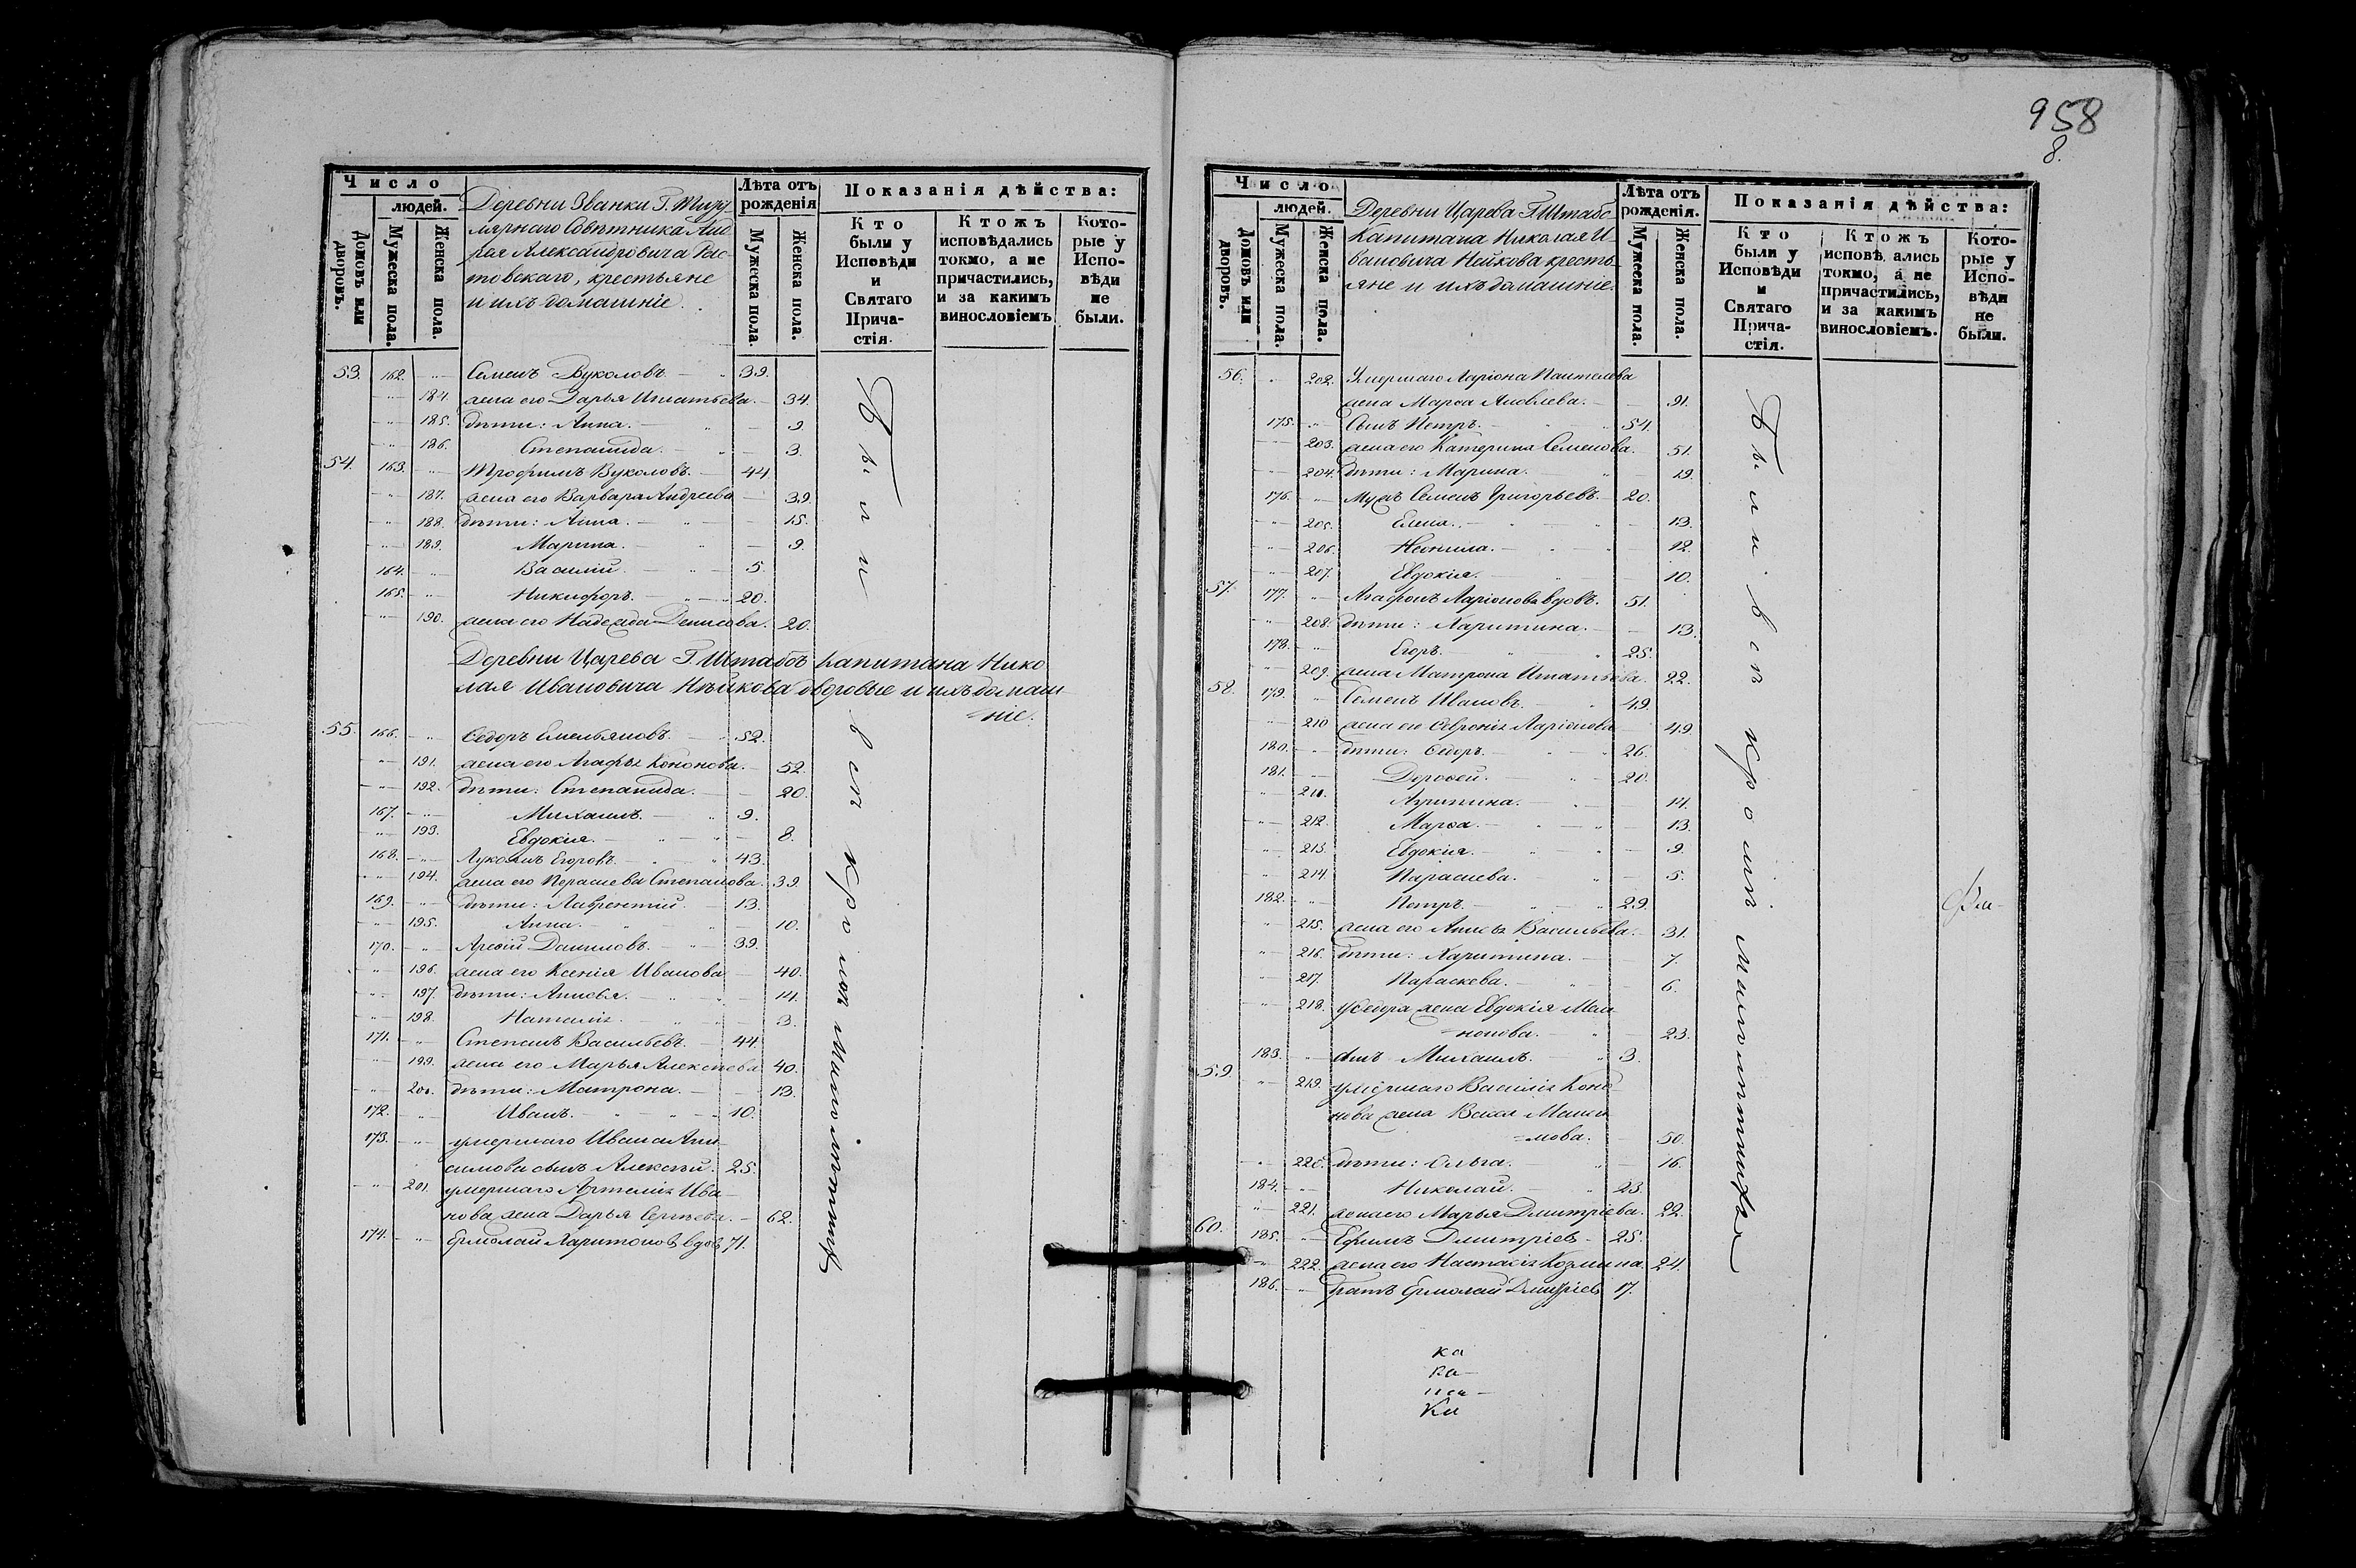 Число
людей.
Домовъ или дворовъ.
Мужеска пола.
Женска пола.
Деревни Званки Г. Титу-
лярнаго Совѣтника Анд
рея Александровича Рос-
товскаго, крестьяне
и ихъ домашніе.
Лѣта отъ рожденія
Мужеска пола.
Женска пола.
Показанія дѣйства:
Кто были у Исповѣди и Святаго Прича-стія.
Ктожъ исповѣдались токмо, а не причастились, и за какимъ винословіемъ
Кото-рые у Испо-вѣди не были.
53. 162. Семенъ Вуколовъ. 39.
184. жена его Дарья Игнатьева. 34.
185. дѣти: Анна. 9
186. Степанида. 3.
54. 163. Трофимъ Вуколовъ. 44
187. жена его Варвара Андреева 39.
188. дѣти: Анна. 15.
189. Марина. 9.
164. Василій. 5.
165. Никифоръ. 20.
190. жена его Надежда Денисова. 20.
Деревни Царева Г. Штабсъ Капитана Нико
лая Ивановича Нѣйкова дворовые и ихъ домаш
=ніе.
55. 166. Ѳедоръ Емельяновъ. 52.
191. жена его Агафья Кононова. 52.
192. дѣти: Степанида. 20.
167. Михаилъ. 9.
193. Евдокія. 8.
168. Егоровъ. 43.
194. жена его Параскева Степанова. 39.
169. дѣти: Лаврентій. 13.
195. Анна. 10.
170. Даниловъ. 39.
196. жена его Ксенія Иванова 40.
197. дѣти: 14.
198. Наталія. 3.
171. Степанъ Васильевъ. 44.
199. жена его Марья Алексѣева 40.
200. дѣти: Матрона. 13.
172. Иванъ. 10.
173. умершаго Ивана Ани
симова сынъ Алексѣй. 25.
201. умершаго Ива-
нова жена Дарья Сергѣева. 62.
174. Ермолай Харитоновъ вдовъ 71.
Были всѣ кромѣ малолѣтнихъ
958
8.
Число
людей.
Домовъ или дворовъ.
Мужеска пола.
Женска пола.
Деревни Царева Г. Штабс-
Капитана Николая И-
вановича Нейкова кресть-
яне и ихъ домашніе.
Лѣта отъ рожденія.
Мужеска пола.
Женска пола.
Показанія дѣйства:
Кто были у Исповѣди и Святаго Прича-стія.
Ктожъ исповѣ ались токмо, а не причастились, и за какимъ винословіемъ.
Кото-рые у Испо-вѣди не были.
56. 202. Умершаго Ларіона Пантелева
жена Марѳа Яковлева. 91.
175. Сынъ Петръ. 54.
203. жена его Катерина Семенова. 51.
204. дѣти: Марина. 19.
176. Мужъ Семенъ Григорьевъ. 20.
205. Елена. 13.
206. Неонила. 12.
207. Евдокія. 10.
57. 177. Агафонъ Ларіоновъ вдовъ. 51.
208. дѣти: Харитина. 13.
178. Егоръ. 25.
209. жена Матрона Игнатьева. 22.
58. 179. Семенъ Ивановъ. 49.
210 жена его Ларіонова 49.
180. дѣти: Ѳедоръ. 26.
181. Дороѳей. 20.
211. 14.
212. Марѳа. 13.
213. Евдокія. 9.
214. Параскева. 5.
182. Петръ. 29.
215. жена его Васильева. 31.
216. дѣти: Харитина. 7.
217. Параскева. 6.
218. у Ѳедора жена Евдокія
=нонова. 23.
183. сынъ Михаилъ. 3.
59 219. умершаго Василія Коно-
нова жена Васса
=мова. 50.
220. дѣти: Ольга. 16.
184. Николай. 23.
221. жена его Марья Дмитріева. 22.
60. 185. Ефимъ Дмитріевъ 25.
222. жена его Настасія Козмина. 24.
186. братъ Ермолай Дмитріевъ 17.
Были всѣ кромѣ малолѣтнихъ
ка
ка-